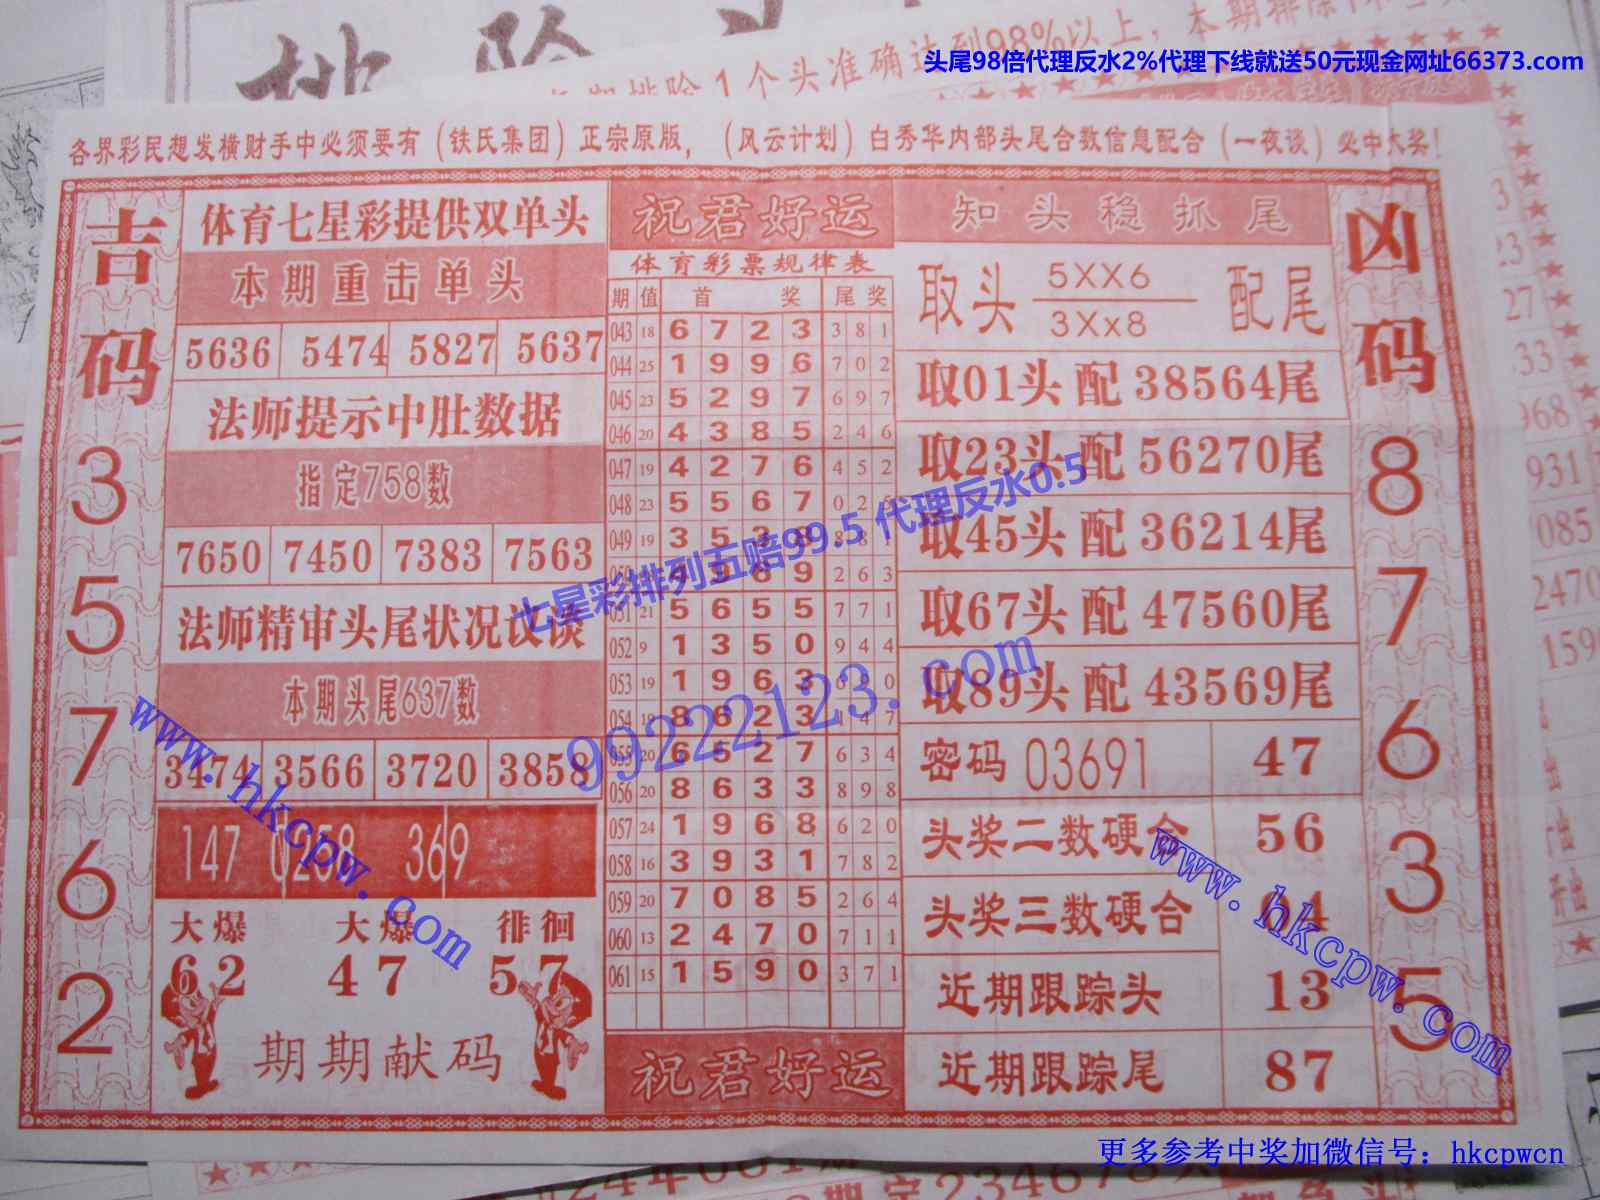 头尾98倍代理反水2%代理下线就送50元现金网址66373.com
排除1个头准确达到98%以上,本期排除
各界彩民想发横财手中必须要有(铁氏集团)正宗原版,(风云计划)白秀华内部头尾合数信息配合(一夜谈)必中大奖!
吉码
3
5
7
6
2
体育七星彩提供双单头
本期重击单头
5636 5474 5827 5637
法师提示中肚数据
指定758数
7650 7450 7383 7563
法师精审头尾状况议谈
本期头尾637数
3474 3566 3720 3858
147 0258 369
大爆 大爆 徘徊
62 47 57
期期献码
祝君好运
体育彩票规律表
期 值 首 奖 尾 奖
043 18 6 7 2 3 3 8 1
044 25 1 9 9 6 7 0 2
045 23 5 2 9 7 6 9 7
046 20 4 3 8 5 2 4 6
047 19 4 2 7 6 4 5 2
048 23 5 5 6 7 0 2
049 19 3 5 3 8 8 1
4 9 8 9 2 6 3
051 21 5 6 5 5 7 7 1
052 9 1 3 5 0 9 4 4
053 19 1 9 6 3 6 9 0
054 19 8 6 2 3 1 4 7
055 20 6 5 2 7 6 3 4
056 20 8 6 3 3 8 9 8
057 24 1 9 6 8 6 2 0
058 16 3 9 3 1 7 8 2
059 20 7 0 8 5 2 6 4
060 13 2 4 7 0 7 1 1
061 15 1 5 9 0 3 7 1
祝君好运
知头稳抓尾
取头 5XX6 配尾
3Xx8
取01头 配 38564尾
取23头 配 56270尾
取45头 配 36214尾
取67头 配 47560尾
取89头 配 43569尾
密码 03691 47
头奖二数硬合 56
头奖三数硬合 04
近期跟踪头 13
近期跟踪尾 87
凶码
8
7
6
3
5
七星彩排列五赔99.5 代理反水0.5
99222123.com
www.hkcpw.com
www.hkcpw.com
968
931
085
2470
159
更多参考中奖加微信号：hkcpwcn